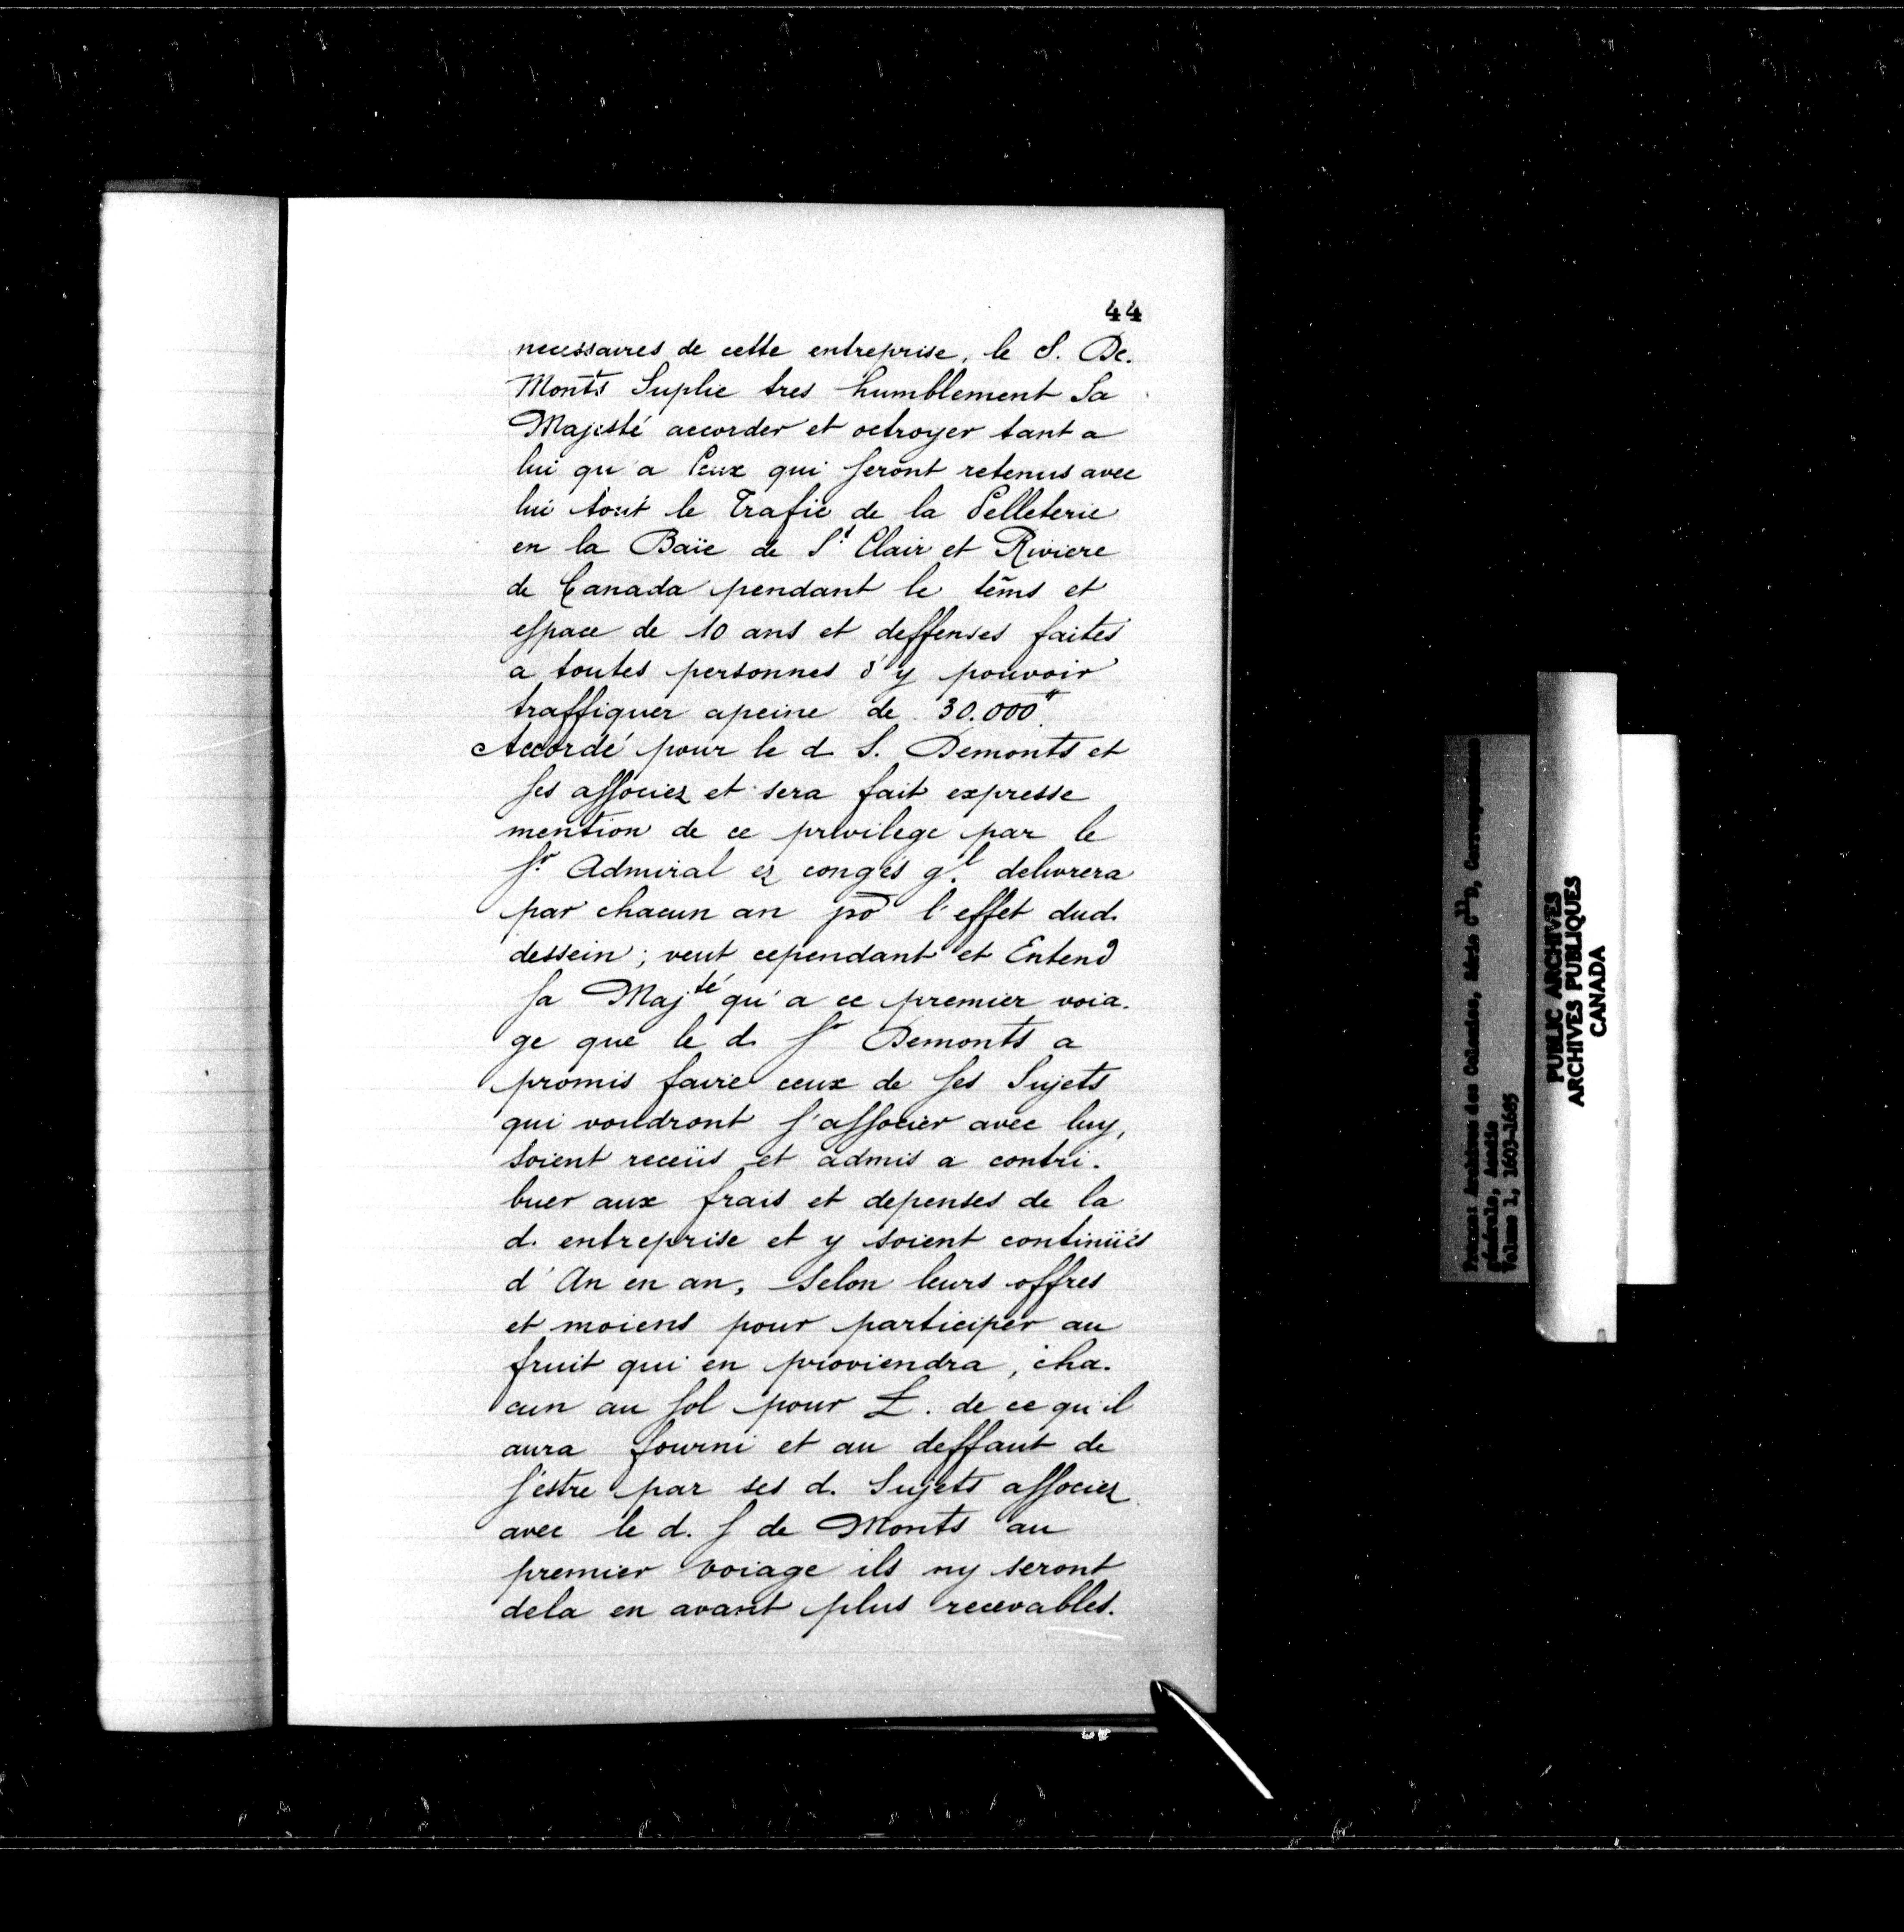 44
necessaires de cette entreprise, le S. De.
Monts Suplie tres humblement Sa
Majesté accorder et octroyer tant a
lui qu'a Ceux qui seront retenus avec
lui tout le Trafic de la Pelleterie
en la Baïe de St. Clair et Riviere
de Canada pendant le tems et
espace de 10 ans et deffenses faites
a toutes personnes d'y pouvoir
traffiquer apeine de 30.000 ᵗᵗ.
Accordé pour le d S. Demonts et
ses associez et sera fait expresse
mention de ce privilege par le
Sr. Admiral ez congés q.l delivrera
par chacun an po l'effet dud.
dessein; veut cependant et Entend
sa Majté qu'a ce premier voia.
ge que le d. Sr Demonts a
promis faire ceux de ses Sujets
qui voudront s'associer avec luy,
soient receüs et admis a contri.
buer aux frais et depenses de la
d. entreprise et y soient continüés
d'An en an, Selon leurs offres
et moiens pour participer au
fruit qui en proviendra, cha.
cun au sol pour £. de ce qu'il
aura fourni et au deffaut de
s'estre par ses d. Sujets associez
avec le d. S de Monts au
premier voiage ils ny seront
dela en avant plus recevables.
PUBLIC ARCHIVES
ARCHIVES PUBLIQUES
CANADA
Archives des Colonies, Série C11D,
générale, Acadie
Volume 1, 1603-1685